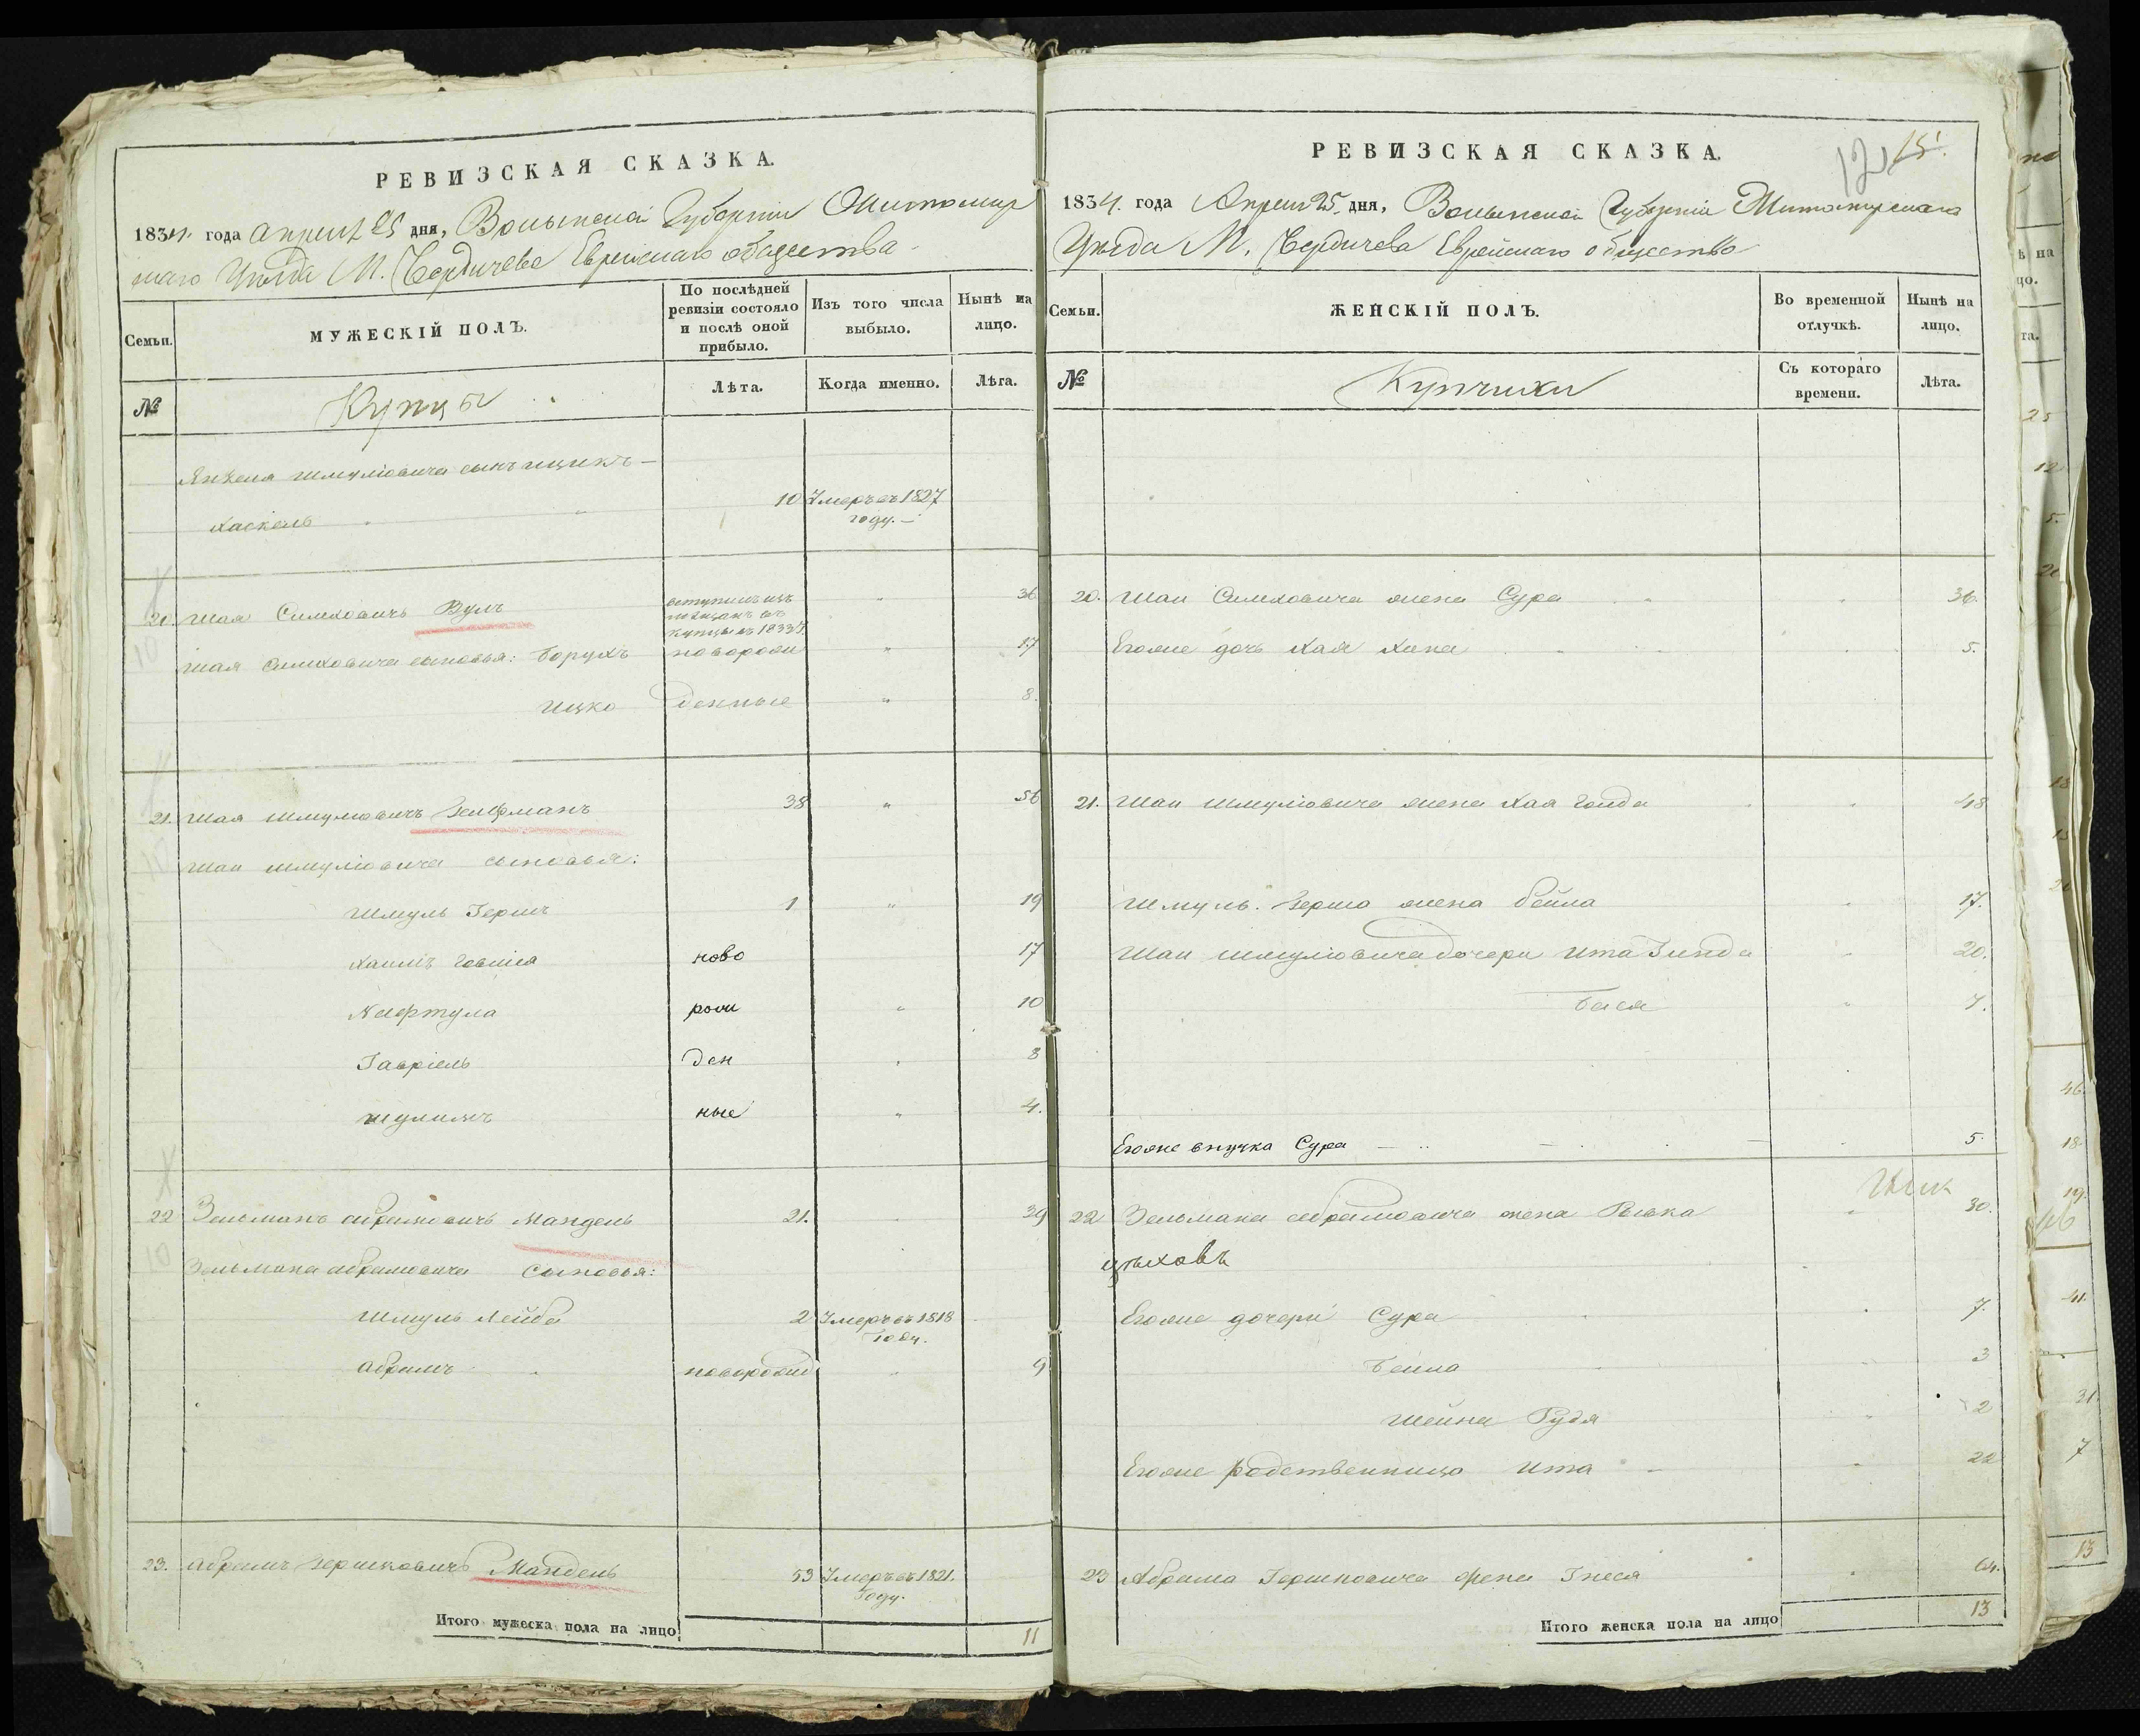 РЕВИЗСКАЯ СКАЗКА.
1834. года Апреля 25 дня, Волынской Губернiи Житомир
скаго Уѣзда М. Бердичева Еврейскаго общества
Семьи.
МУЖЕСКІЙ ПОЛЪ.
По послѣдней ревизіи состояло и послѣ оной прибыло.
Изъ того числа выбыло.
Нынѣ на лицо.
№
Купцы
Лѣта.
Когда именно.
Лѣта.
Янкеля Шмулiовича сынъ Ицикъ —
Хаскель 10 Умеръ въ 1827
году. —
20 Шая Симховичь Вулъ вступилъ изъ мещанъ въ купцы въ 1833 г. " 36
Шая Симховича сыновья: Борухъ новорож " 17
Ицко денные " 8.
21. Шая Шмулiовичъ Зелфманъ 38 " 56
Шаи Шмулiовича сыновья:
Шмуль Герш 1 " 19
Хаимъ ново 17
Нафтула рож " 10
Гаврiель ден " 8
Шулимъ ные " 4.
22 Зельманъ Абрамовичь Мандель 21. 39
Зельмана Абрамовича сыновья:
Шмуль Лейба 2 Умеръ въ 1818
году.
Абрамъ новорожд 9
23. Абрамъ Гершковичъ Мандель 53 Умеръ въ 1821.
Году.
Итого мужеска пола на лицо 11
15.
РЕВИЗСКАЯ СКАЗКА.
1834. года Апреля 25. дня, Волынской Губернiи Житомирскаго
Уѣзда М. Бердичева Еврейскаго общества
Семьи.
ЖЕНСКІЙ ПОЛЪ.
Во временной отлучкѣ.
Нынѣ на лицо.
№
Купчихи
Съ котораго времени.
Лѣта.
20. Шаи Симховича жена Сура 36.
Егоже дочь Хая Хана 5.
21. Шаи Шмулiовича жена Хая Голда " 48
Шмуль. Герша жена Бейла " 17.
Шаи Шмулiовича дочери Ита Зинда " 20.
Бася " 7.
Егоже внучка Сура — 5.
22 Зельмана Абрамовича жена Ривка " 30.
Егоже дочери Сура 7.
Бейла 3
Шейна Рудя 2
Егоже родственница Ита 22
23 Абрама Гершковича жена Гнеся 64.
Итого женска пола на лицо 13